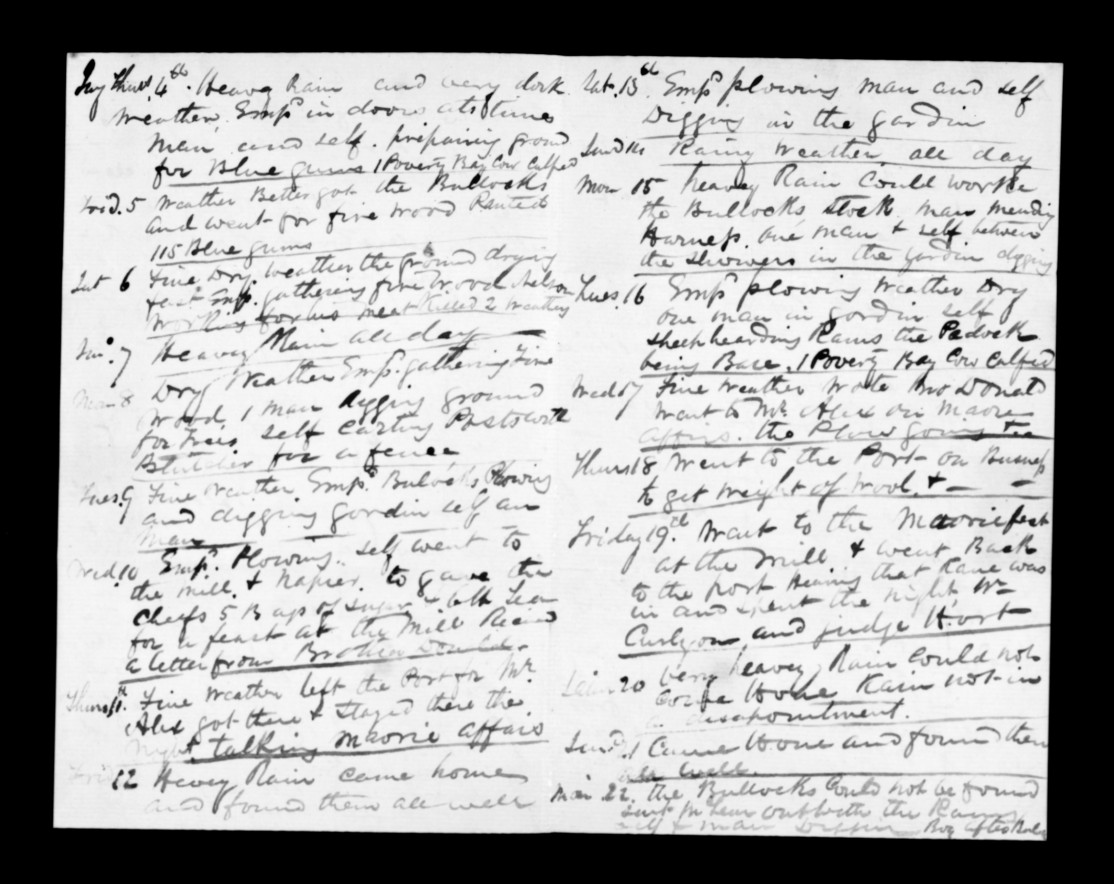 Thurs 4th. Heavy Rain and very dark
Weather. Empd in doors at time
Man and self. prepairing ground
for Blue gums 1 Poverty Bay Cow Calfed
Frid. 5 Weather Better got the Bullocks
and went for fire wood Planted
115 Blue gums
Sat 6 Fine Dry weather the ground drying
fast Empd. gathering fire wood Nelson
working for his meet Killed 2 weathers
7 Heavy Rain all day
Mon 8 Dry Weather Empd. gathering Fire
Wood, 1 man digging ground
for trees self carting Posts with
for a fence
Tues. 9 Fine Weather Empd. Bulocks Plowing
and digging gordin self an
man
Wed. 10 Empd. Plowing. self went to
the mill & Napier, to gave the
Cheefs 5 Bags of sugar & Tea
for a feast at the Mill
a letter from Brother Donald.
Thurs 11th. Fine Weather left the Port for Mr.
Alex got there & Stayed there the
night talking Maorie affairs
12 Heavey Rain came home
and found them all well
Sat. 13th Empd plowing man and self
Digging in the gardin
Sund 14 Rainy Weather, all day
Mon 15 heavey Rain Could
the Bullocks, man mending
Harness. one man & self between
the showers in the gardin digging
Tues. 16 Empd plowing Weather Dry
one man in gordin self
sheep hearding Rams the Padock
being Bare, 1 Poverty Bay Cow Calfed
Wed 17 Fine Weather Wrote Bro Donald
Want to Mr. Alex on Maorie
affairs. the Plow going
Thurs 18 Went to the Port on Busness
to get weight of Wool. & — —
Friday 19th. Want to the Maorie feast
at the Mill & went Back
to the port Hearing that Kane was
in and spent the night Wm
Curlyon and Judge H
20 Very heavey Rain Could not
Home Rain not in
a disapointment.
Sund 21 Came Home and found them
all well.
Mon 22. the Bullocks Could not be found
out with the Rams
self & man